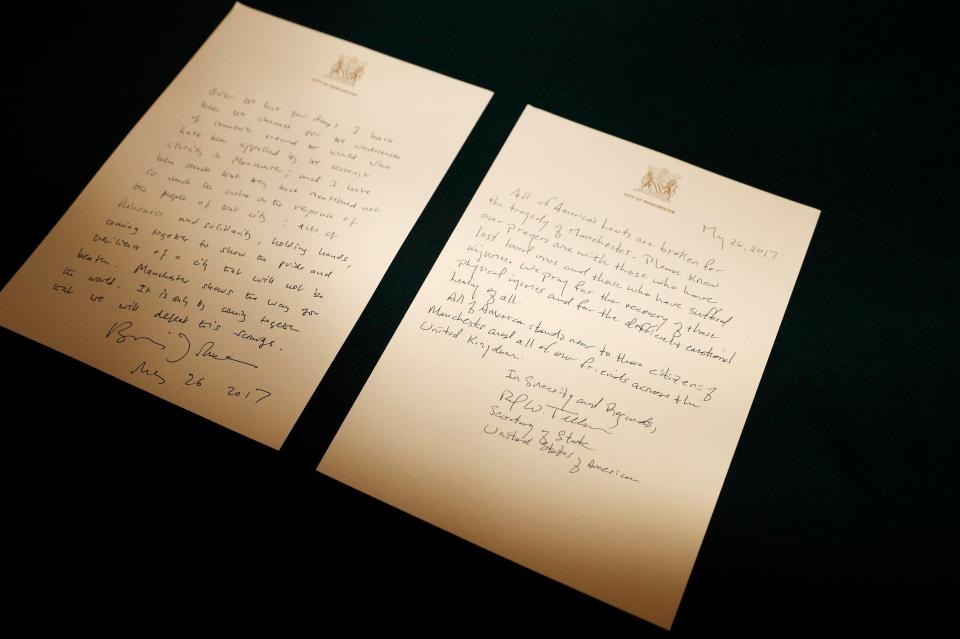 CITY OF MANCHESTER
Over the last few days I have
been
of countries around the world who
have been appalled by the terrorist
atrocity in Manchester; and I have
been struck that they have mentioned not
so much the as the response of
the people of that city: acts of
kindness and solidarity, holding hands,
coming together to show the pride and
resilience of a city that will not be
beaten. Manchester shows the way for
the world. It is only by coming together
that we will defeat this scourge.
May 26 2017
CITY OF MANCHESTER
May 26, 2017
All of America's hearts are broken for
the tragedy of Manchester. Please know
our prayers are with those who have
lost loved ones and those who have suffered
injuries. We pray for the recovery of those
physical injuries and for the difficult emotional
healing of all.
All of America stands near to those citizens of
Manchester and all of our friends across the
United Kingdom.
In Sincerity and Regards,
Secretary of State
United States of America